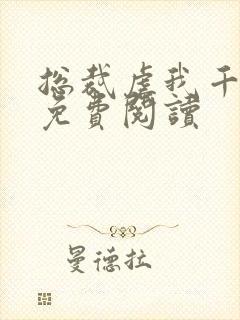 总裁虐我千
免費閱讀
曼德拉